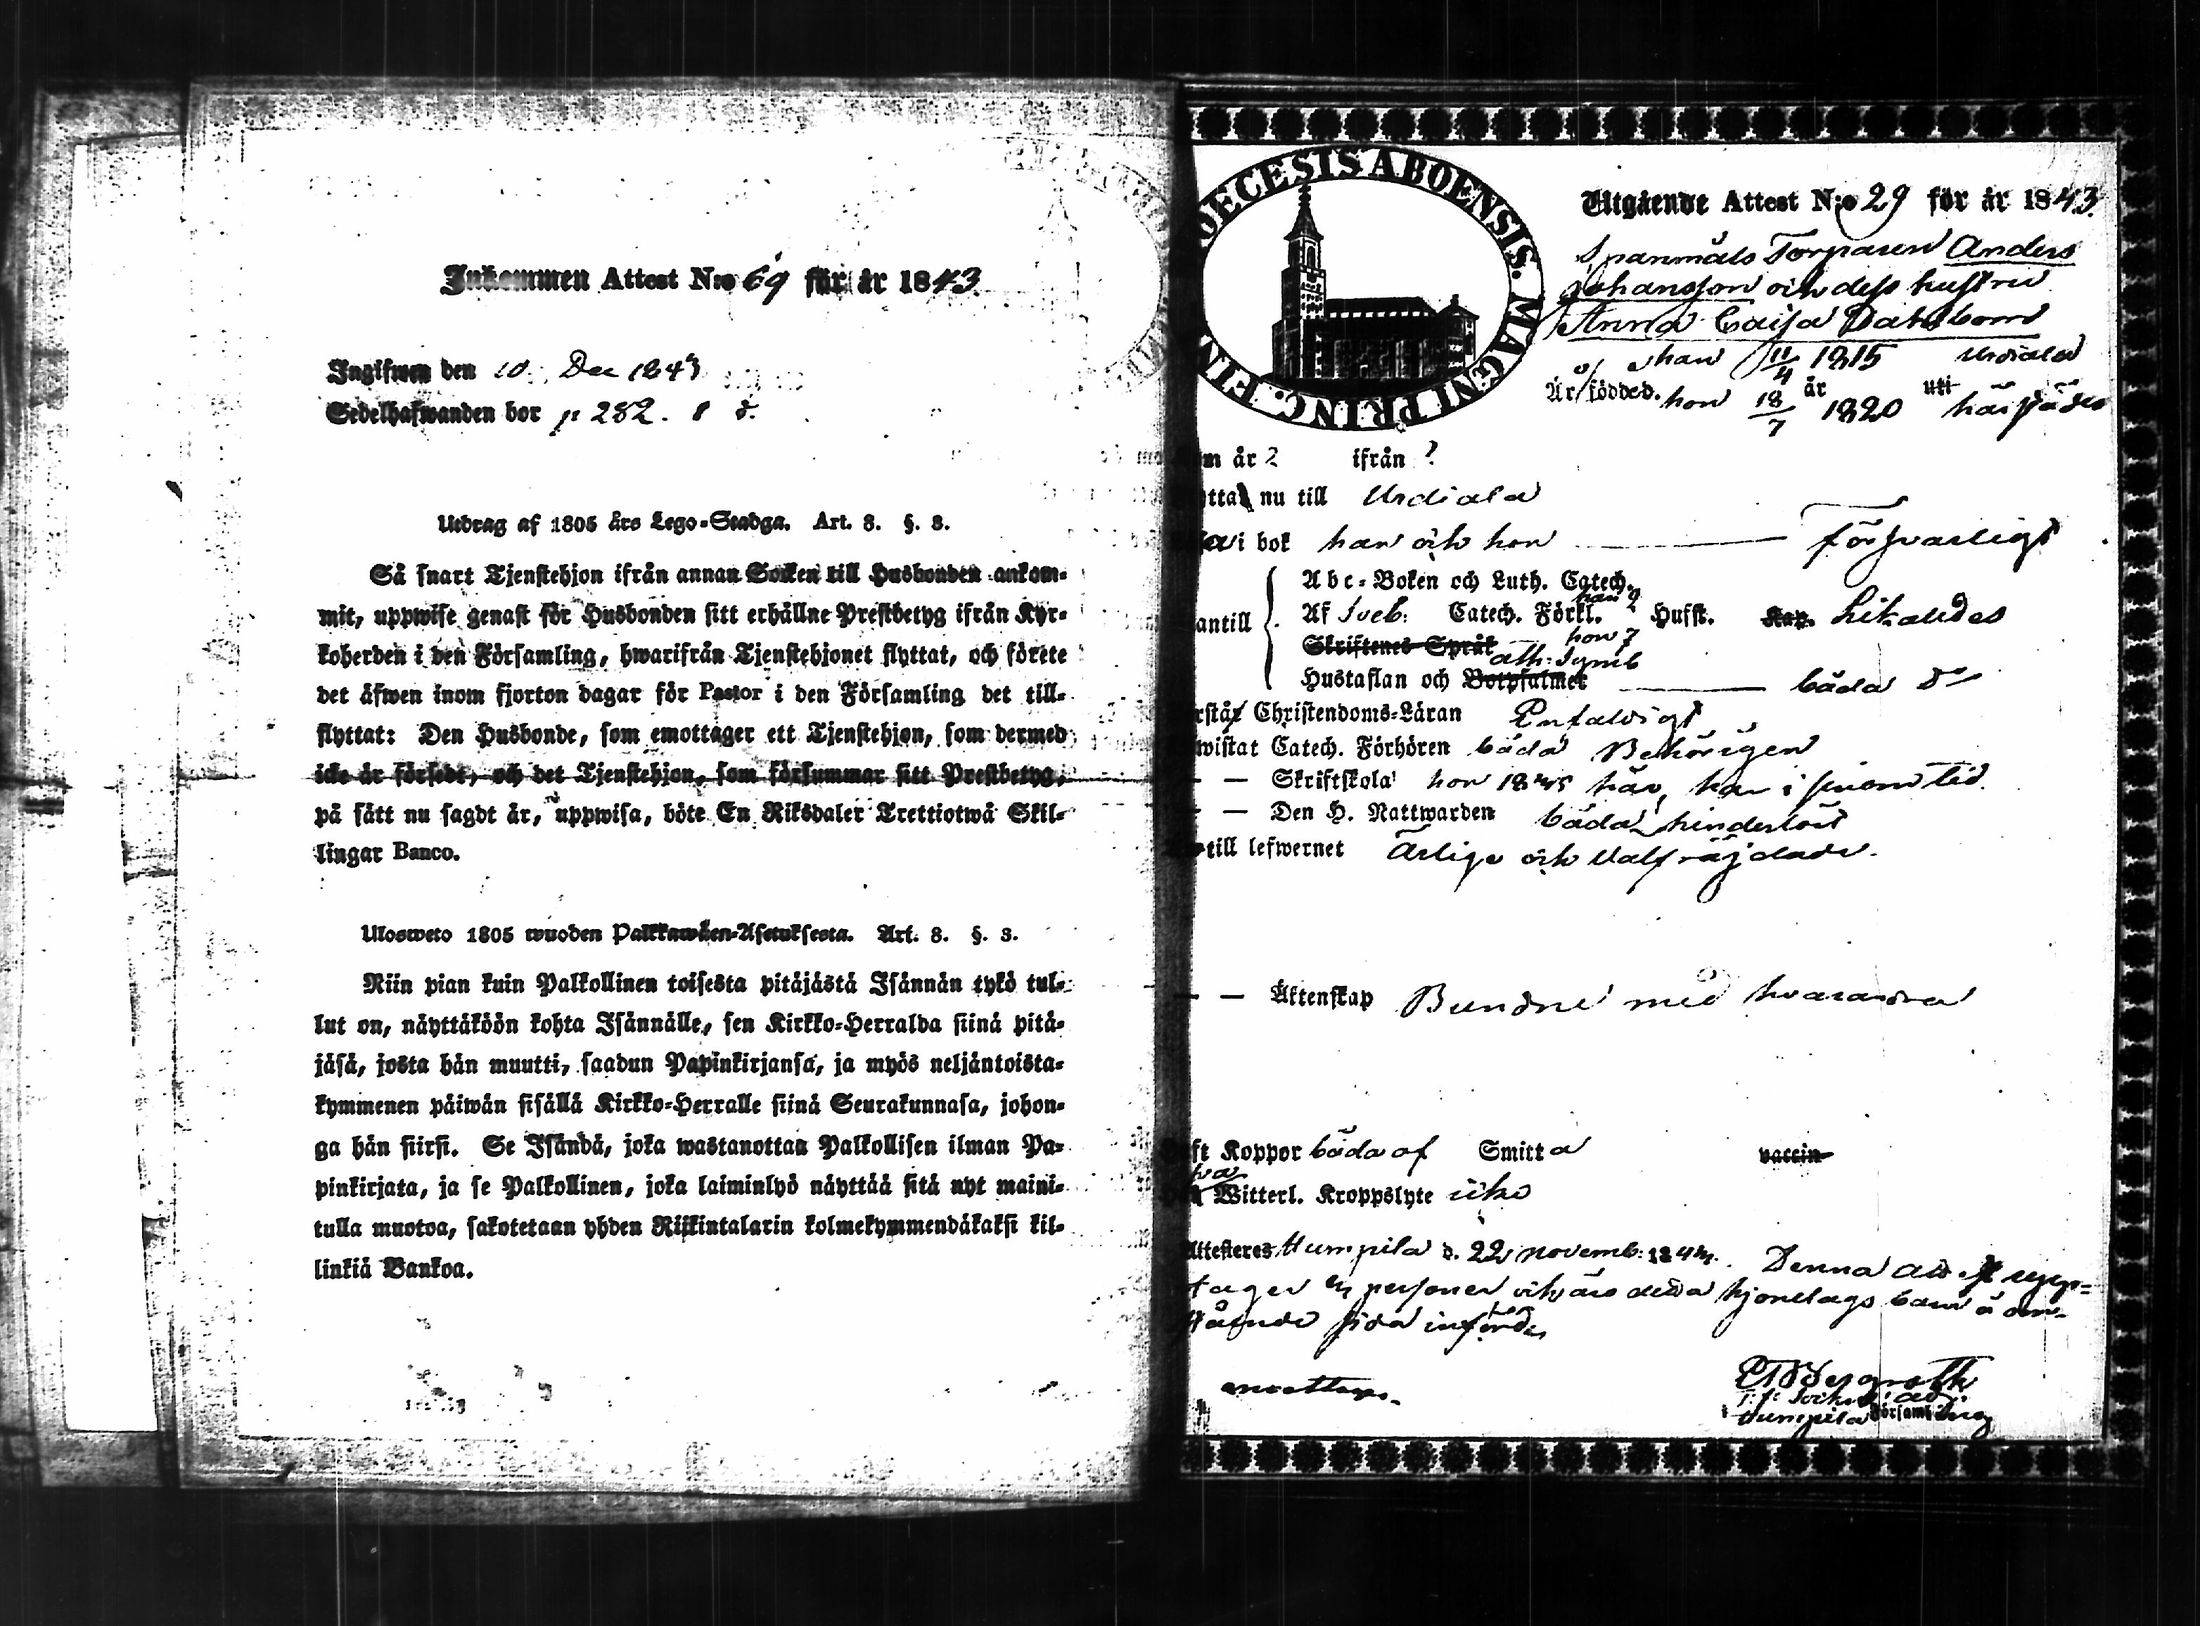 Inkommen Attest N:o 69 för år 1843.
Ingifwen den 10. Dec 1843
Sedelhafwanden bor p 282.
Utdrag af 1805 års Lego-Stadga. Art. 8. §. 8.
Så snart Tjenstehjon ifrån annan Socken till Husbonden ankom-
mit, uppwise genast för Husbonden sitt erhållne Prestbetyg ifrån Kyr-
koherden i den Församling, hwarifrån Tjenstehjonet flyttat, och förete
det äfwen inom fjorton dagar för Pastor i den Församling det till-
flyttat: Den Husbonde, som emottager ett Tjenstehjon, som dermed
icke är försedt, och det Tjenstehjon, som försummar sitt Prestbetyg,
på sätt nu sagdt är, uppwisa, böte En Riksdaler Trettiotwå Skil-
lingar Banco.
Ulosweto 1805 wuoden Palkkawäen-Asetuksesta. Art. 8. §. 3.
Niin pian kuin Palkollinen toisesta pitäjästä Isännän tykö tul-
lut on, näyttäköön kohta Isännälle, sen Kirkko-Herralda siinä pitä-
jäsä, josta hän muutti, saadun Papinkirjansa, ja myös neljäntoista-
kymmenen päiwän sisällä Kirkko-Herralle siinä Seurakunnasa, johon-
ga hän siirsi. Se Isändä, joka wastanottaa Palkollisen ilman Pa-
pinkirjata, ja se Palkollinen, joka laiminlyö näyttää sitä nyt maini-
tulla muotoa, sakotetaan yhden Riikintalarin kolmekymmendäkaksi kil-
linkiä Bankoa.
DECESIS ABOENSIS. MAGNI PRINC. FIN
Utgående Attest N:o 29 för år 1843.
Spanmåls Torparen Anders
Johansson och dess hustru
Anna Caisa Dahlbom
han 11/4 1815 Urdiala
Är födde d. hon 18/7 år 1820 uti härstädes
m år 2 ifrån ?
ttat nu till Urdiala
i bok han och hon förswarligt
antill
Abc-Boken och Luth. Catech.
Af Sveb. Catech. Förkl. han 9 Husst. Kap. Likaledes
Skriftenes Språk hon 7
ath: Symb
Hustaflan och Botpsalmer båda do
rstår Christendoms-Läran Enfaldigt
wistat Catech. Förhören båda Behörigen
— — Skriftskola hon här, han i sinom tid.
— — Den H. Nattwarden båda hinderlöst
till lefwernet Ärlige och Välfräjdade.
— — Äktenskap Bundne med hvarandra
ft Koppor båda af Smitta vaccin
Witterl. Kroppslyte icke
Attesteres Humpila d. 22 novemb: 1843. Denna attest upp-
tager personer och äro detta hjonelags barn å om-
stående sida införde
Bergroth
Humpila Församling